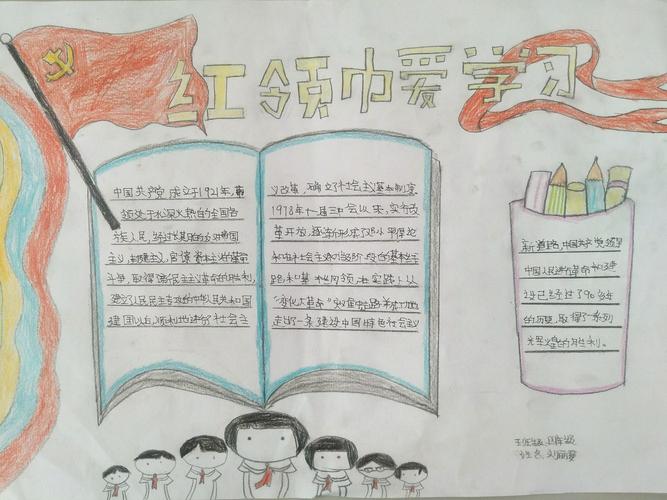 红领巾爱学习
中国共产党成立于1921年,
领处于水深火热的全国各
族人民,经过长期的反对帝国
主义,封建主义,官僚资本主义的革命
斗争,取得了新民主主义革命的胜利,
建立了人民民主专政的中华人民共和国
建国以后,顺利地进行了社会主
义改革,确立了社会主义基本制度
1978年十一届三中会以来,实行改
革开放,逐渐形成了邓小平理论
和社会主义初级阶段的基本
路和基
走出了一条建设中国特色社会主义
新道路,中国共产党领导
中国人民进行革命和建
设已经过了90多年
的历史,取得了一系列
光辉煌的胜利。